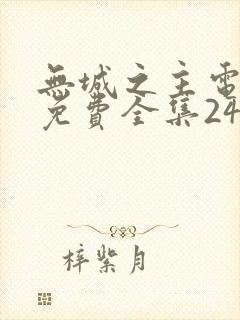 無城之主電
免費全集24
梓紫月